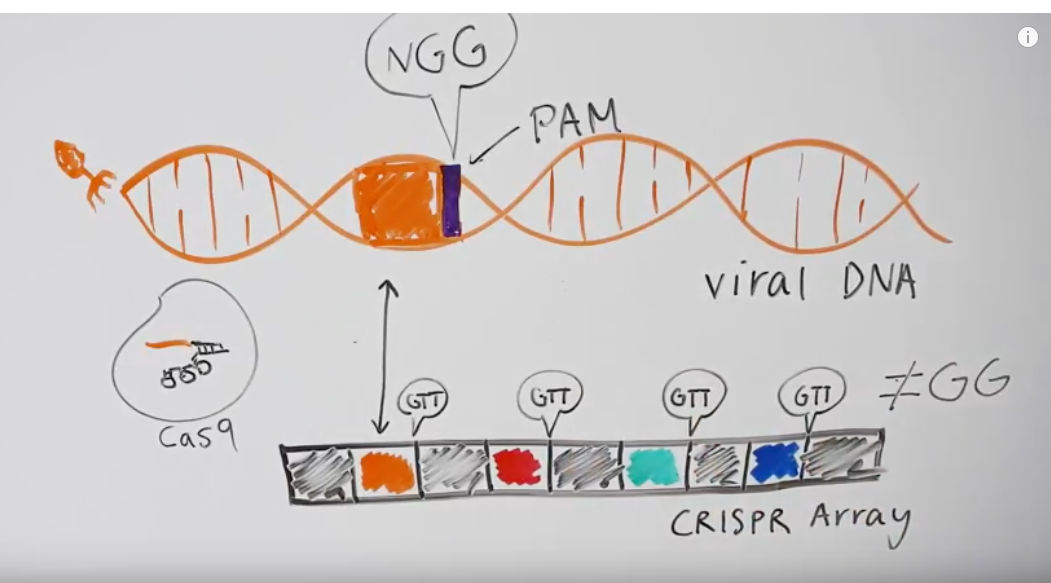 NGG
PAM
viral DNA
Cas9
GTT
GTT
GTT
GTT
≠GG
CRISPR Array